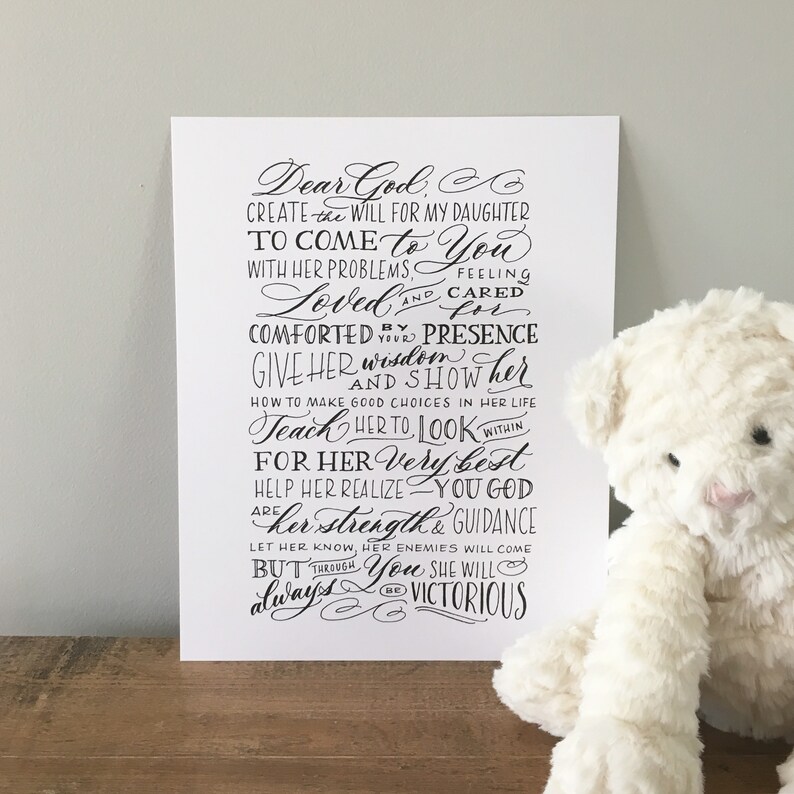 Dear God,
CREATE the WILL FOR MY DAUGHTER
TO COME to You
WITH HER PROBLEMS, FEELING
Loved AND CARED for
COMFORTED BY YOUR PRESENCE
GIVE HER wisdom
AND SHOW her
HOW TO MAKE GOOD CHOICES IN HER LIFE
Teach HER TO LOOK WITHIN
FOR HER very best
HELP HER REALIZE – YOU GOD
ARE her strength & GUIDANCE
LET HER KNOW, HER ENEMIES WILL COME
BUT THROUGH You SHE WILL
always BE VICTORIOUS